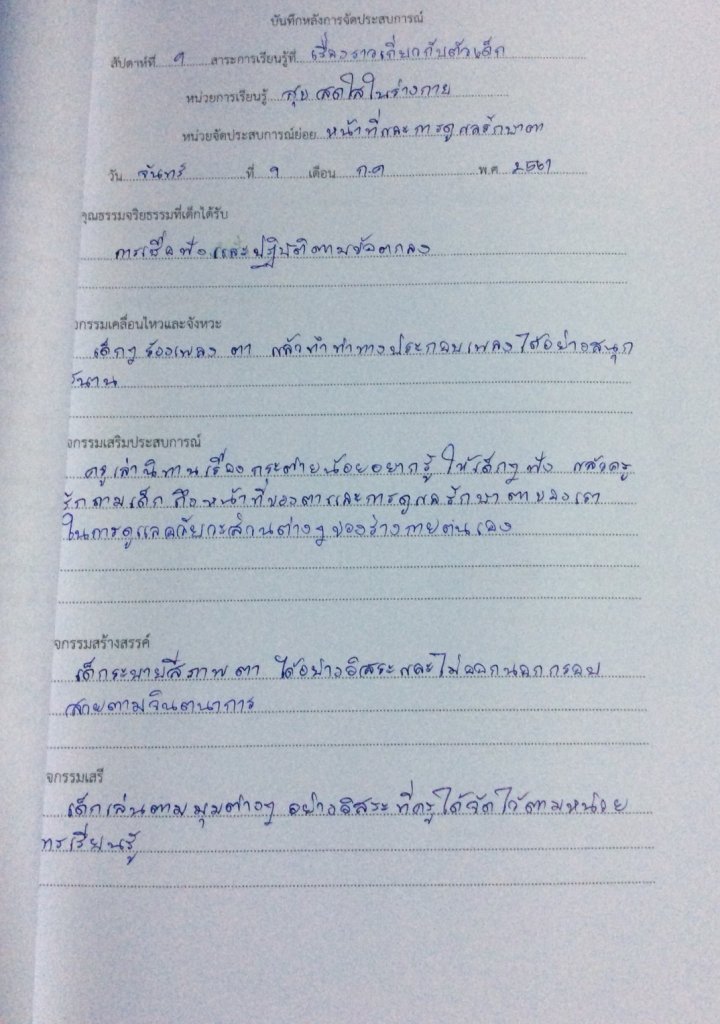 บันทึกหลังการจัดประสบการณ์
สัปดาห์ที่ ๑ สาระการเรียนรู้ที่ เรื่องราวเกี่ยวกับตัวเด็ก
หน่วยการเรียนรู้ สุข สดใสในร่างกาย
หน่วยจัดประสบการณ์ย่อย หน้าที่และการดูแลรักษาตา
วัน จันทร์ ที่ ๑ เดือน ก.ค พ.ศ ๒๕๖๑
คุณธรรมจริยธรรมที่เด็กได้รับ
การเชื่อฟังและปฏิบัติตามข้อตกลง
กรรมเคลื่อนไหวและจังหวะ
เด็กๆ ร้องเพลง ตา แล้วทำท่าทางประกอบเพลงได้อย่างสนุก
นาน
กรรมเสริมประสบการณ์
ครูเล่านิทานเรื่อง กระต่ายน้อยอยากรู้ ให้เด็กๆ ฟัง แล้วครู
ถามเด็ก ถึงหน้าที่ของตาและการดูแลรักษาตาของเรา
ในการดูแลอวัยวะส่วนต่างๆ ของร่างกายตนเอง
จกรรมสร้างสรรค์
เด็กระบายสีภาพ ตา ได้อย่างอิสระและไม่ออกนอกกรอบ
ตามจินตนาการ
จกรรมเสรี
เด็กเล่นตามมุมต่างๆ อย่างอิสระ ที่ครูได้จัดไว้ตามหน่วย
การเรียนรู้